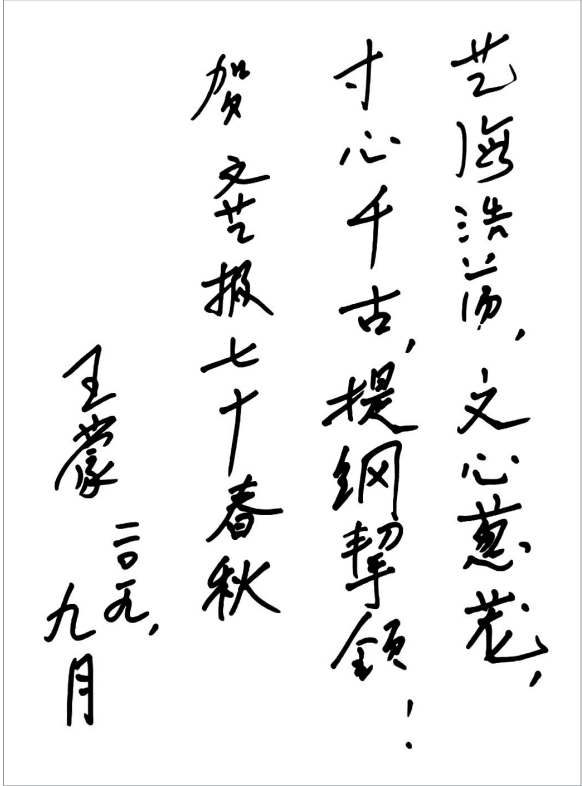 艺海浩荡,文心葱茏,
寸心千古,提纲挈领!
贺文艺报七十春秋
王蒙
二〇一九,
九月